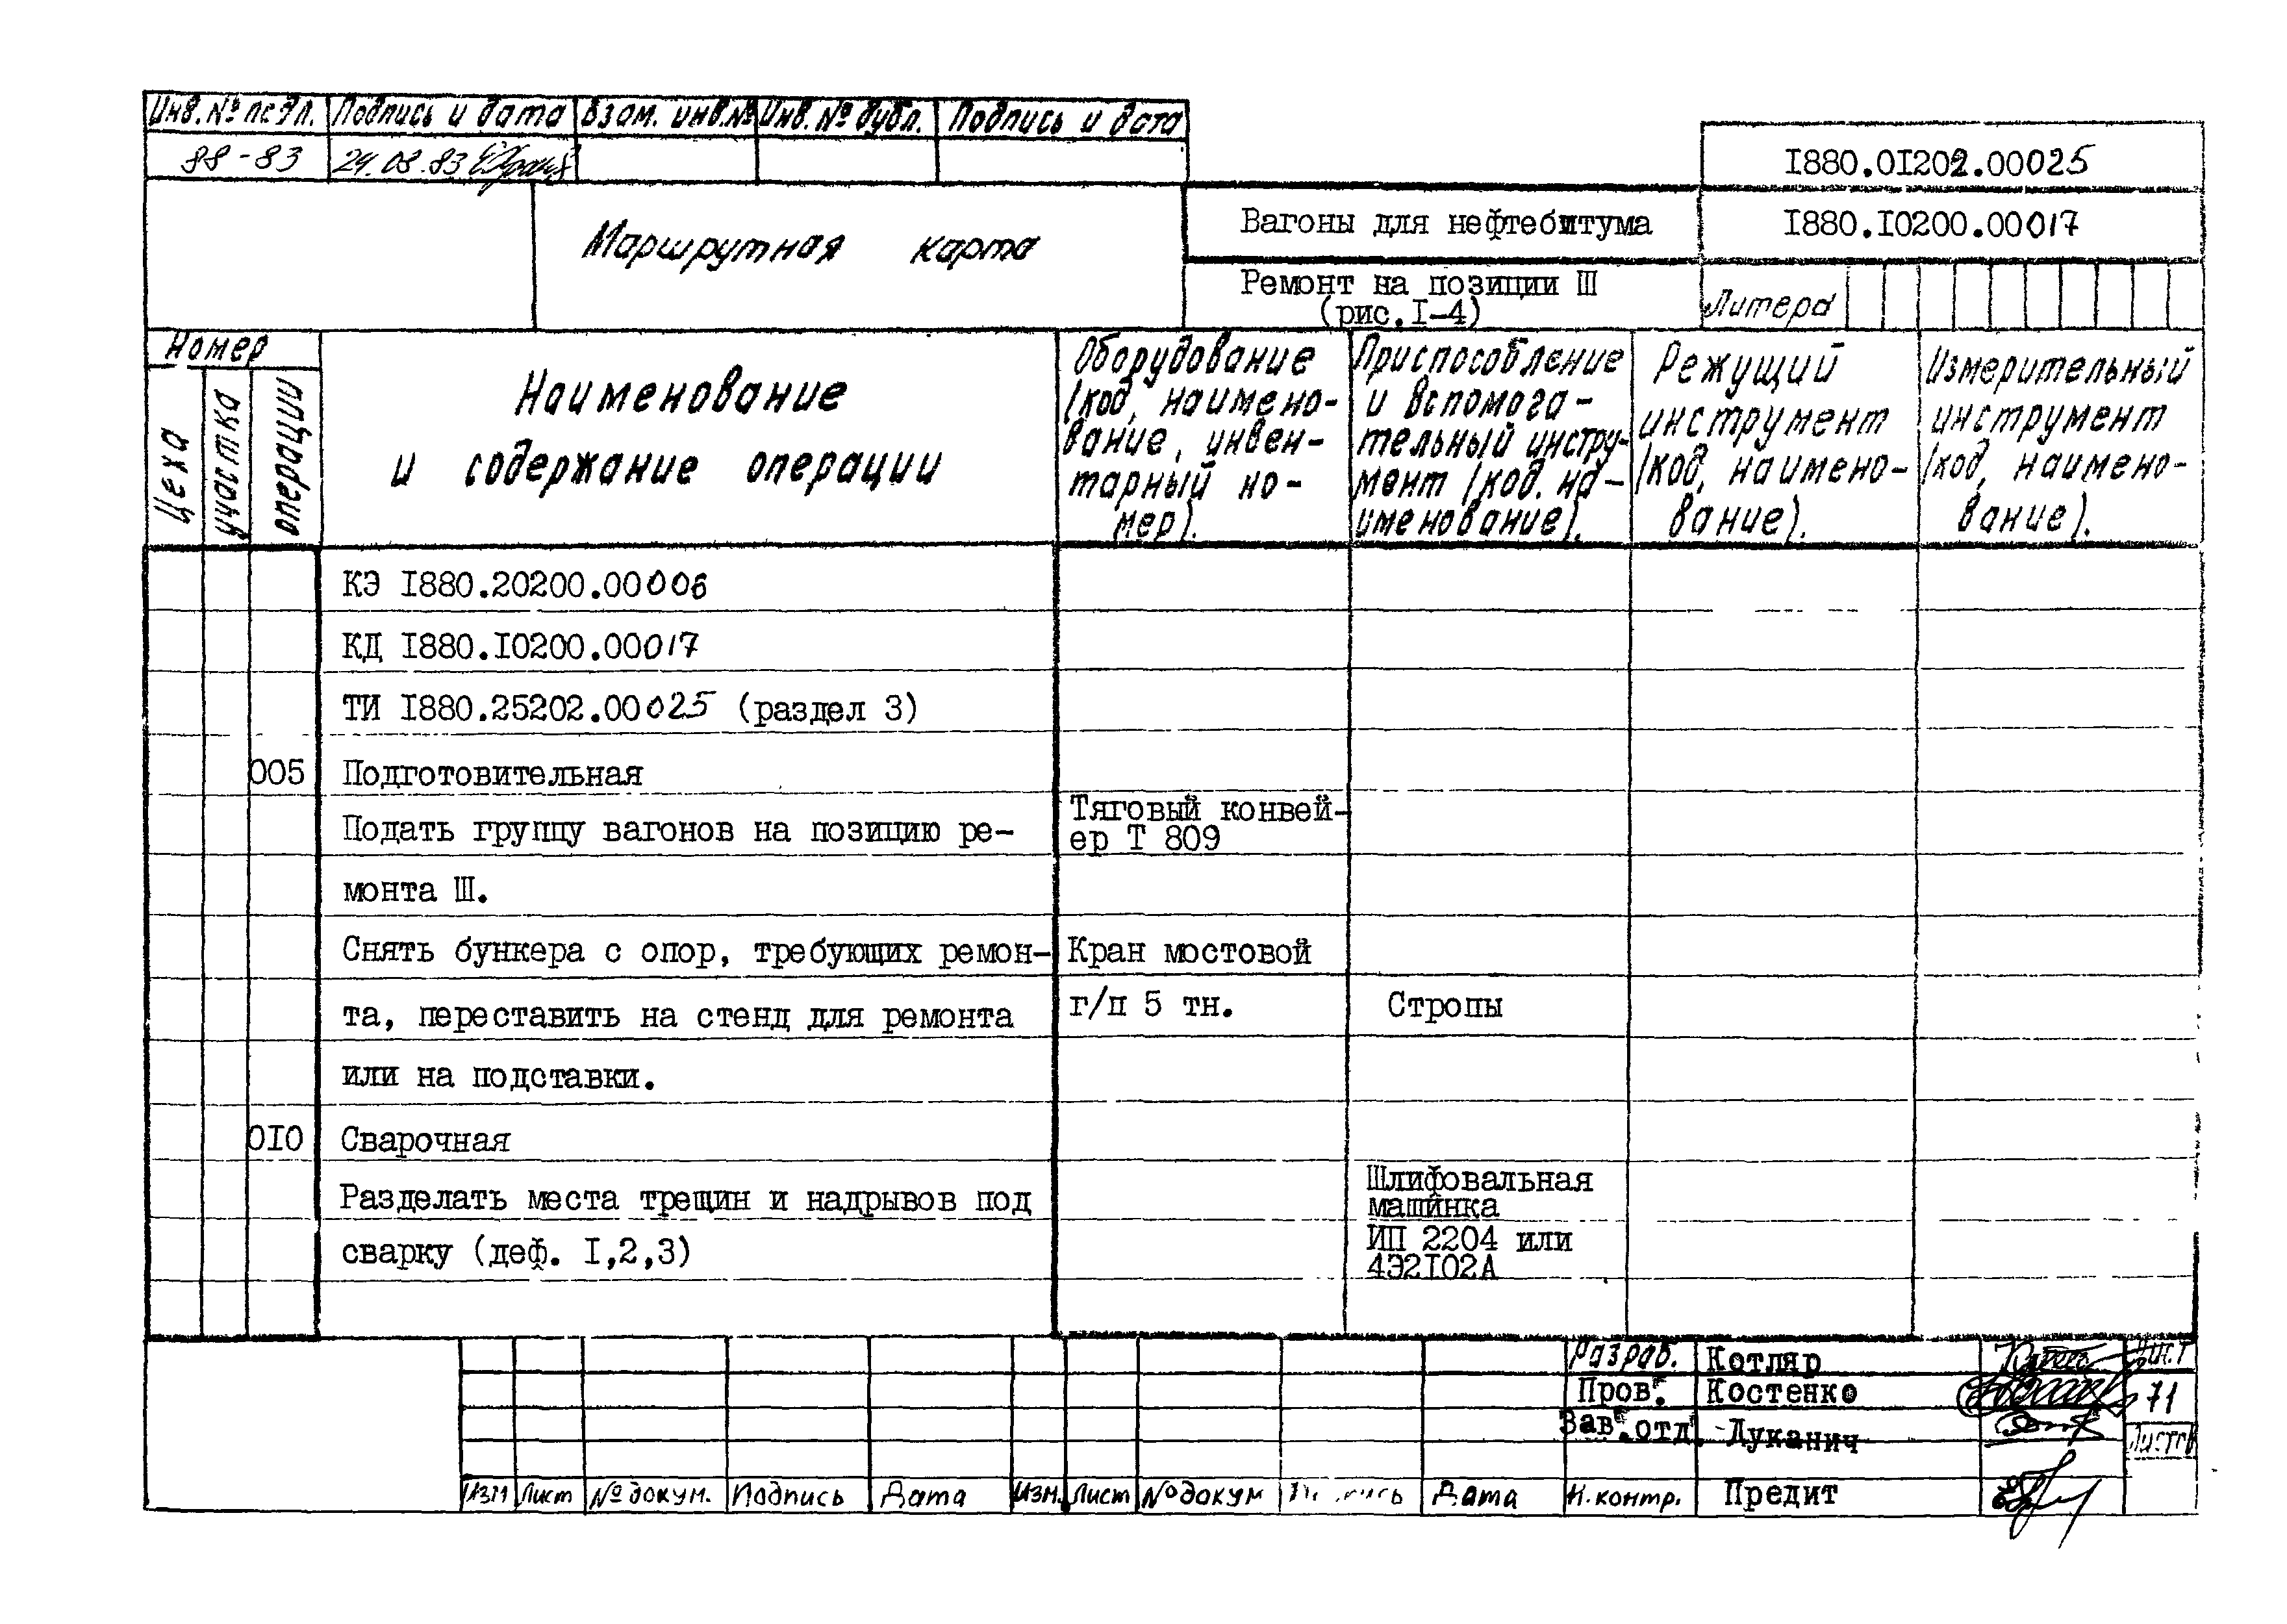 Инв. № подл. Подпись и дата Взам. инв. № Инв. № дубл. Подпись и дата
88-83 24.08.83
1880.01202.00025
Маршрутная карта
Вагоны для нефтебитума
1880.10200.00017
Ремонт на позиции Ш
(рис.I-4)
Литера
Номер
Цеха
участка
операции
Наименование
и содержание операции
Оборудование
(код, наимено-
вание, инвен-
тарный но-
мер).
Приспособление
и вспомога-
тельный инстру-
мент (код. на-
именование).
Режущий
инструмент
(код, наимено-
вание).
Измерительный
инструмент
(код, наимено-
вание).
КЭ I880.20200.00006
КД I880.I0200.00017
ТИ I880.25202.00025 (раздел 3)
005 Подготовительная
Подать группу вагонов на позицию ре-
монта Ш.
Тяговый конвей-
ер Т 809
Снять бункера с опор, требующих ремон-
та, переставить на стенд для ремонта
или на подставки.
Кран мостовой
г/п 5 тн.
Стропы
0I0 Сварочная
Разделать места трещин и надрывов под
сварку (деф. I,2,3)
Шлифовальная
машинка
ИП 2204 или
4Э2I02А
Разраб. Котляр Лист
Пров. Костенко 71
Зав.отд. Луканич Листов
Изм Лист № докум. Подпись Дата Изм. Лист № докум Подпись Дата Н. контр. Предит